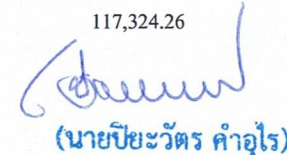 117,324.26
(นายปิยะวัตร คำอุไร)